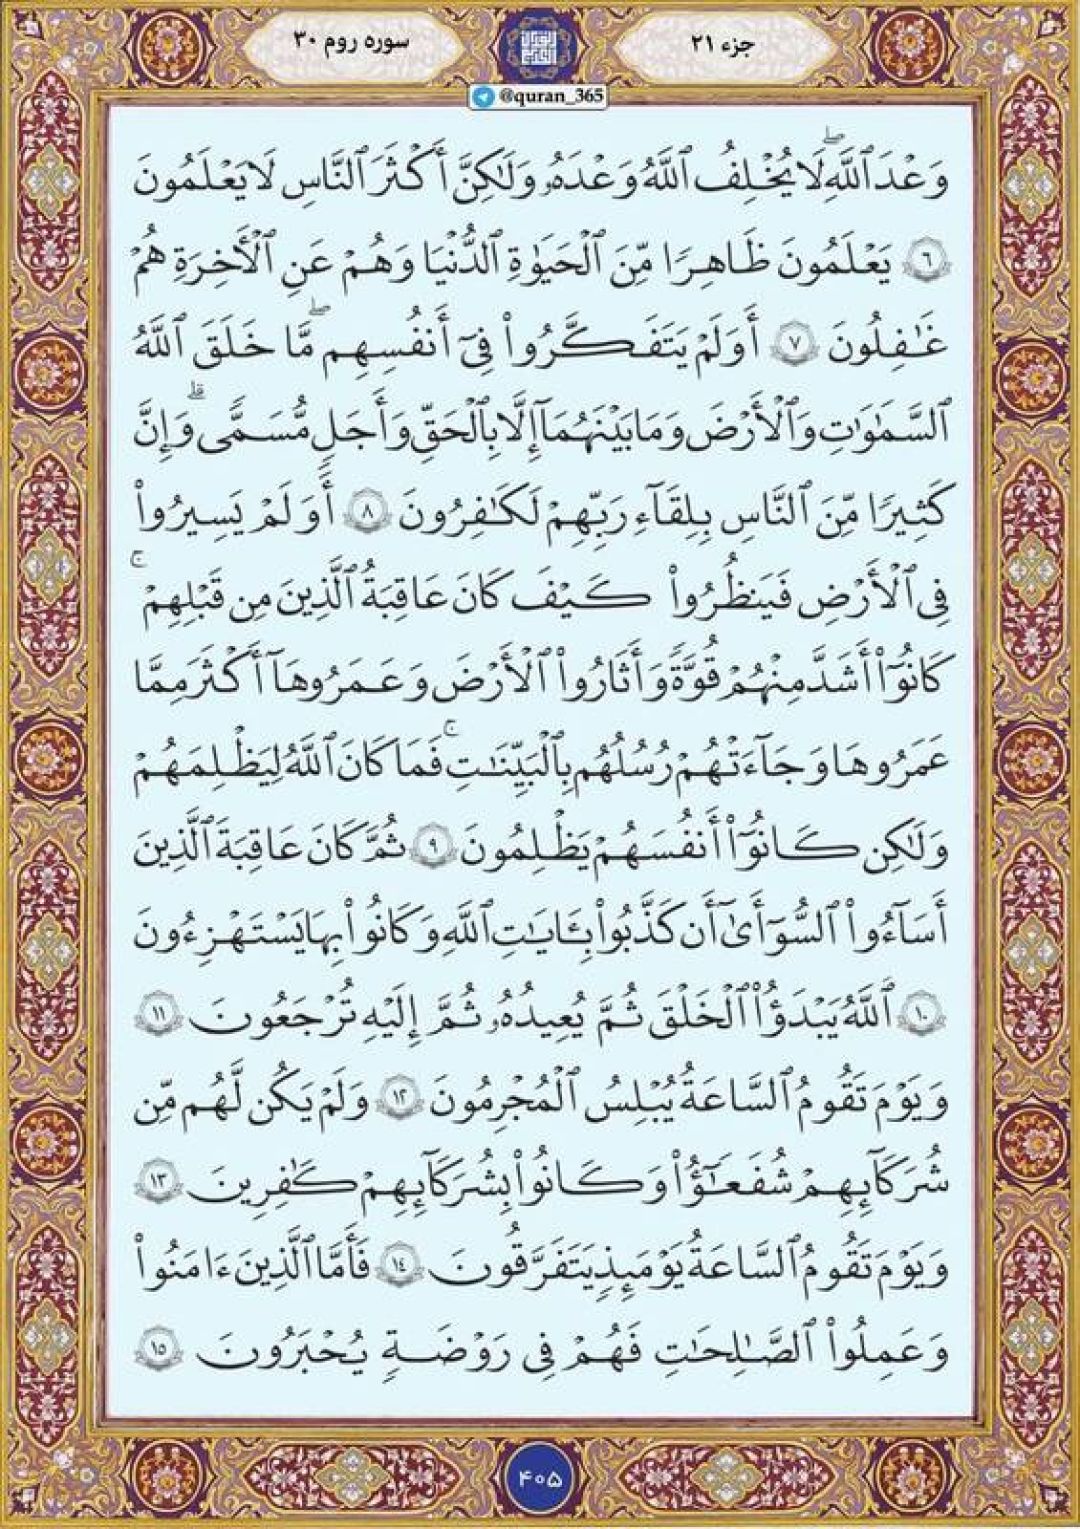 جزء ۲۱
سوره روم ۳۰
@quran_365
وَعْدَ ٱللَّهِۖ لَا يُخْلِفُ ٱللَّهُ وَعْدَهُۥ وَلَٰكِنَّ أَكْثَرَ ٱلنَّاسِ لَا يَعْلَمُونَ
٦ يَعْلَمُونَ ظَٰهِرًا مِّنَ ٱلْحَيَوٰةِ ٱلدُّنْيَا وَهُمْ عَنِ ٱلْأَخِرَةِ هُمْ
غَٰفِلُونَ ٧ أَوَلَمْ يَتَفَكَّرُوا۟ فِىٓ أَنفُسِهِمۖ مَّا خَلَقَ ٱللَّهُ
ٱلسَّمَٰوَٰتِ وَٱلْأَرْضَ وَمَا بَيْنَهُمَآ إِلَّا بِٱلْحَقِّ وَأَجَلٍ مُّسَمًّىۗ وَإِنَّ
كَثِيرًا مِّنَ ٱلنَّاسِ بِلِقَآءِ رَبِّهِمْ لَكَٰفِرُونَ ٨ أَوَلَمْ يَسِيرُوا۟
فِى ٱلْأَرْضِ فَيَنظُرُوا۟ كَيْفَ كَانَ عَاقِبَةُ ٱلَّذِينَ مِن قَبْلِهِمْۚ
كَانُوٓا۟ أَشَدَّ مِنْهُمْ قُوَّةً وَأَثَارُوا۟ ٱلْأَرْضَ وَعَمَرُوهَآ أَكْثَرَ مِمَّا
عَمَرُوهَا وَجَآءَتْهُمْ رُسُلُهُم بِٱلْبَيِّنَٰتِۚ فَمَا كَانَ ٱللَّهُ لِيَظْلِمَهُمْ
وَلَٰكِن كَانُوٓا۟ أَنفُسَهُمْ يَظْلِمُونَ ٩ ثُمَّ كَانَ عَاقِبَةَ ٱلَّذِينَ
أَسَآءُوا۟ ٱلسُّوٓأَىٰٓ أَن كَذَّبُوا۟ بِـَٔايَٰتِ ٱللَّهِ وَكَانُوا۟ بِهَا يَسْتَهْزِءُونَ
١٠ ٱللَّهُ يَبْدَؤُا۟ ٱلْخَلْقَ ثُمَّ يُعِيدُهُۥ ثُمَّ إِلَيْهِ تُرْجَعُونَ ١١
وَيَوْمَ تَقُومُ ٱلسَّاعَةُ يُبْلِسُ ٱلْمُجْرِمُونَ ١٢ وَلَمْ يَكُن لَّهُم مِّن
شُرَكَآئِهِمْ شُفَعَٰٓؤُا۟ وَكَانُوا۟ بِشُرَكَآئِهِمْ كَٰفِرِينَ ١٣
وَيَوْمَ تَقُومُ ٱلسَّاعَةُ يَوْمَئِذٍ يَتَفَرَّقُونَ ١٤ فَأَمَّا ٱلَّذِينَ ءَامَنُوا۟
وَعَمِلُوا۟ ٱلصَّٰلِحَٰتِ فَهُمْ فِى رَوْضَةٍ يُحْبَرُونَ ١٥
۴۰۵